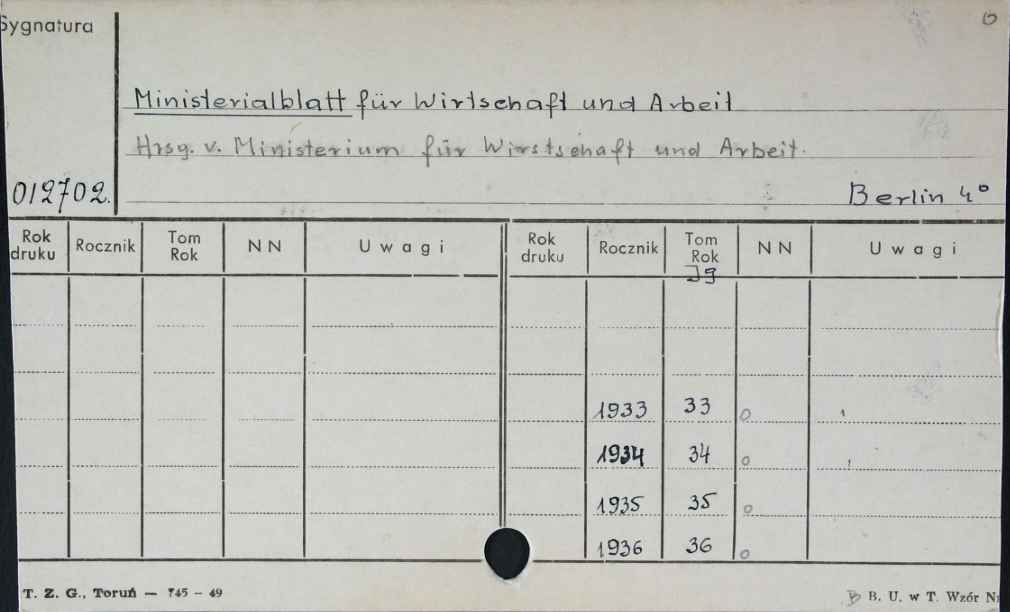 Sygnatura
Ministerialblatt für Wirtschaft und Arbeit
Hrsg. v. Ministerium für Wirstschaft und Arbeit.
012702.
Berlin 4°
Rok druku Rocznik Tom Rok NN Uwagi Rok druku Rocznik Tom Rok NN Uwagi
Jg
1933 33 o
1934 34 o
1935 35 o
1936 36 o
T. Z. G., Toruń — 745 - 49
B. U. w T. Wzór Nr